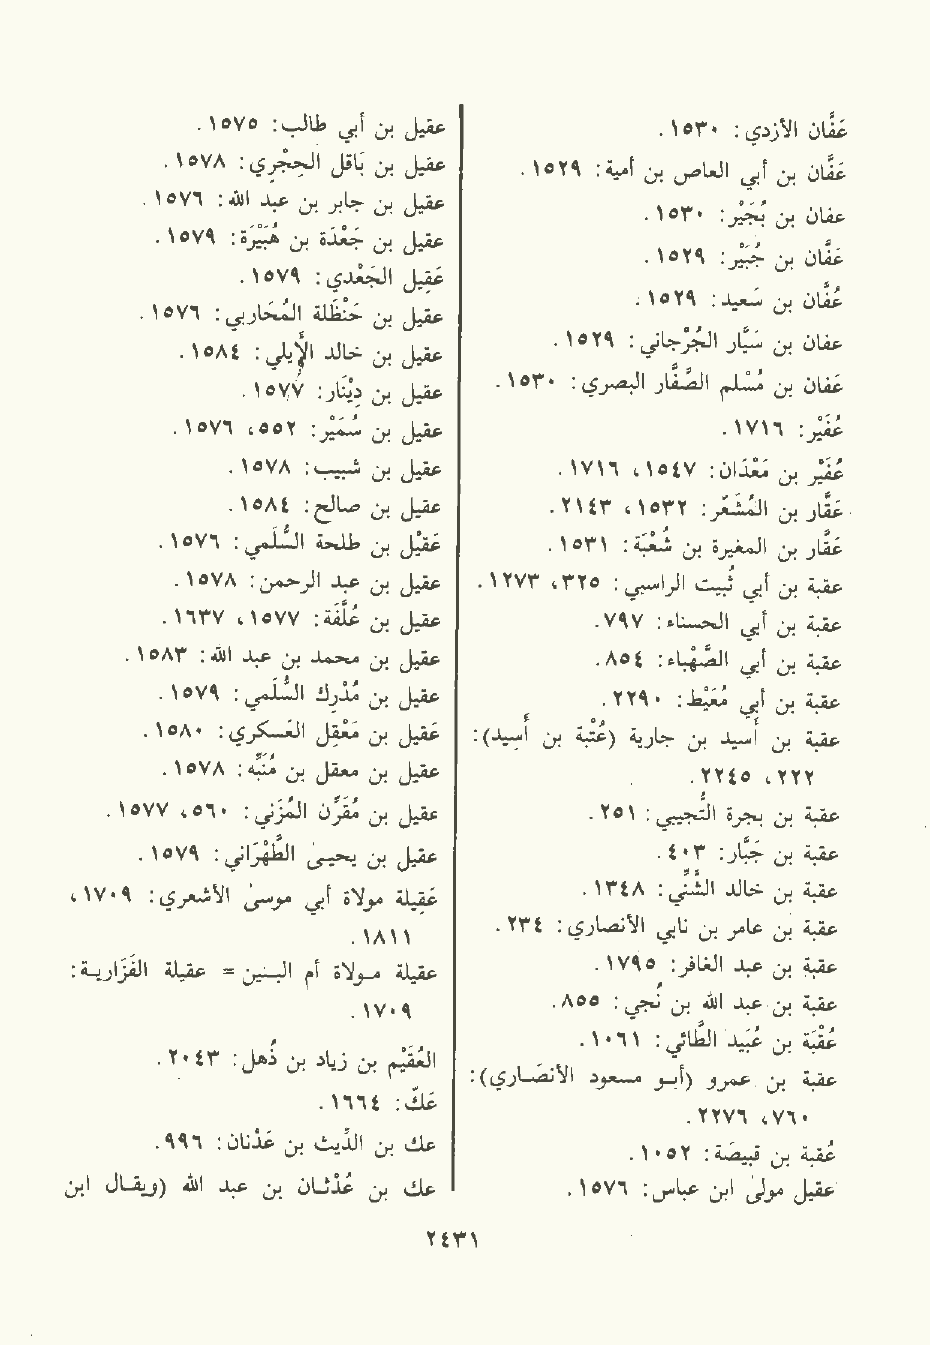 عَفَّان الأزدي: ١٥٣٠.
عَفَّان بن أبي العاص بن أمية: ١٥٢٩.
عفان بن بُجَيْر: ١٥٣٠.
عَفَّان بن جُبَيْر: ١٥٢٩.
عُفَّان بن سَعيد: ١٥٢٩.
عفان بن سَيَّار الجُرْجاني: ١٥٢٩.
عَفان بن مُسْلم الصَّفَّار البصري: ١٥٣٠.
عُفَيْر: ١٧١٦.
عُفَيْر بن مَعْدَان: ١٥٤٧، ١٧١٦.
عَقَّار بن المُشَعّر: ١٥٣٢، ٢١٤٣.
عَقَّار بن المغيرة بن شُعْبَة: ١٥٣١.
عقبة بن أبي ثُبيت الراسبي: ٣٢٥، ١٢٧٣.
عقبة بن أبي الحسناء: ٧٩٧.
عقبة بن أبي الصَّهْباء: ٨٥٤.
عقبة بن أبي مُعَيْط: ٢٢٩٠.
عقبة بن أَسيد بن جارية (عُتْبة بن أَسِيد):
٢٢٢، ٢٢٤٥.
عقبة بن بجرة التُّجيبي: ٢٥١.
عقبة بن جَبَّار: ٤٠٣.
عقبة بن خالد الشَّنِّي: ١٣٤٨.
عقبة بن عامر بن نابي الأنصاري: ٢٣٤.
عقبة بن عبد الغافر: ١٧٩٥.
عقبة بن عبد الله بن نُجي: ٨٥٥.
عُقْبَة بن عُبَيد الطَّائي: ١٠٦١.
عقبة بن عمرو (أبو مسعود الأنصَاري):
٧٦٠، ٢٢٧٦.
عُقبة بن قبيصَة: ١٠٥٢.
عقيل مولىٰ ابن عباس: ١٥٧٦.
عقيل بن أبي طالب: ١٥٧٥.
عقيل بن بَاقل الحِجْري: ١٥٧٨.
عقيل بن جابر بن عبد الله: ١٥٧٦.
عقيل بن جَعْدَة بن هُبَيْرَة: ١٥٧٩.
عَقِيل الجَعْدي: ١٥٧٩.
عقيل بن حَنْظَلة المُحَاربي: ١٥٧٦.
عقيل بن خالد الأَيلي: ١٥٨٤.
عقيل بن دِيْنَار: ١٥٧٧.
عقيل بن سُمَيْر: ٥٥٢، ١٥٧٦.
عقيل بن شبيب: ١٥٧٨.
عقيل بن صالح: ١٥٨٤.
عَقيْل بن طلحة السُّلَمي: ١٥٧٦.
عقيل بن عبد الرحمن: ١٥٧٨.
عقيل بن عُلَّفَة: ١٥٧٧، ١٦٣٧.
عقيل بن محمد بن عبد الله: ١٥٨٣.
عقيل بن مُدْرِك السُّلَمي: ١٥٧٩.
عَقيل بن مَعْقِل العَسكري: ١٥٨٠.
عقيل بن معقل بن مُنَبِّه: ١٥٧٨.
عقيل بن مُقَرِّن المُزَني: ٥٦٠، ١٥٧٧.
عقيل بن يحيىٰ الطَّهْرَاني: ١٥٧٩.
عَقِيلة مولاة أبي موسىٰ الأشعري: ١٧٠٩،
١٨١١.
عقيلة مولاة أم البنين = عقيلة الفَزَارية:
١٧٠٩.
العُقَيْم بن زياد بن ذُهل: ٢٠٤٣.
عَكّ: ١٦٦٤.
عك بن الدِّيث بن عَدْنان: ٩٩٦.
عك بن عُدْثان بن عبد الله (ويقال ابن
٢٤٣١